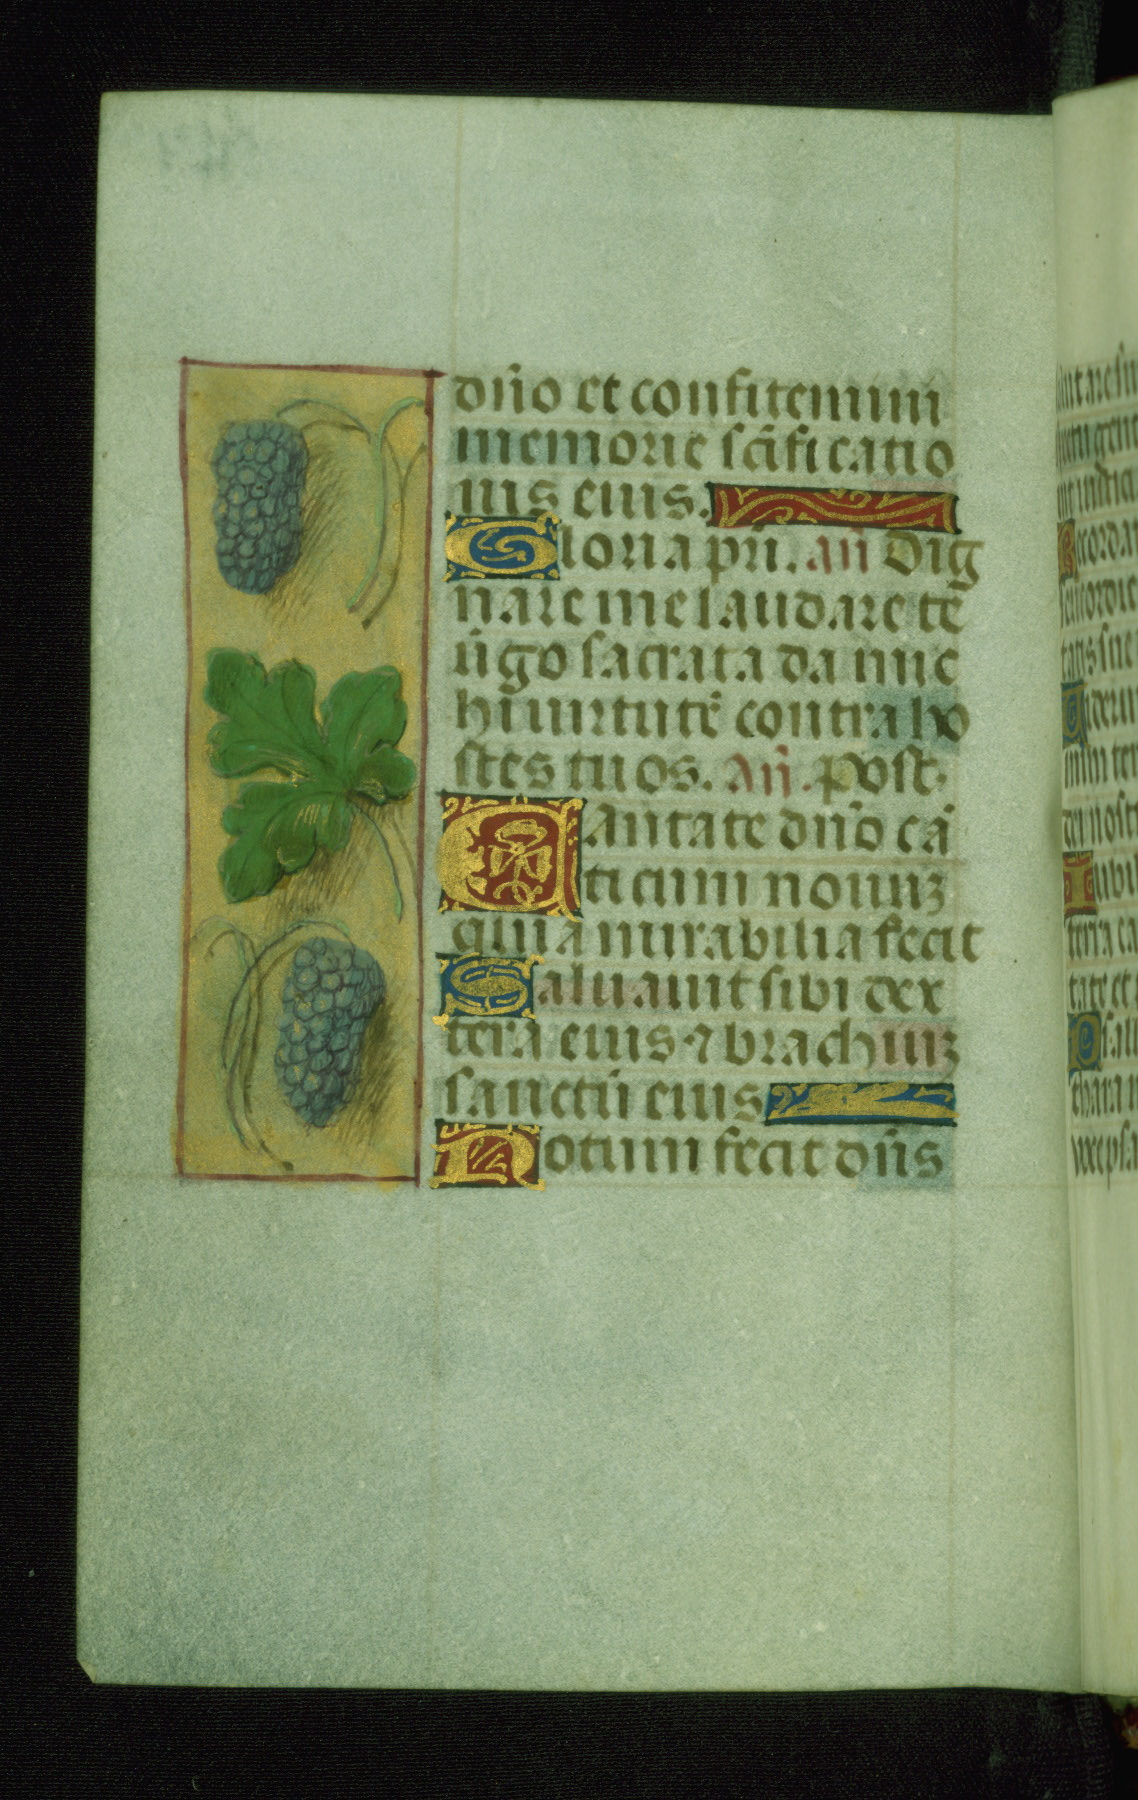 dño et confitemini
memorie scīficatio
nis eius.
Gloria pri. añ Dig
nare me laudare te
ūgo sacrata da mic
hi uirtutē contra ho
stes tuos. Añ. Post.
Cantate dño cā
ticum nouuʒ
quia mirabilia fecit
Saluauit sibi dex
tera eius ⁊ brachiuʒ
sanctū eius
Notum fecit dñs